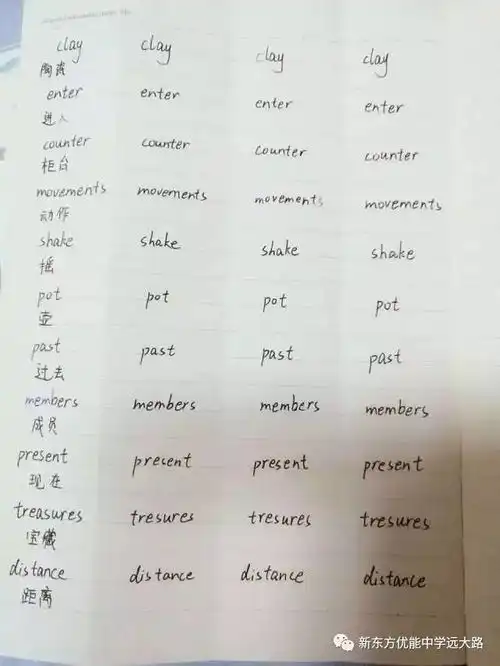 clay clay clay clay
陶瓷
enter enter enter enter
进入
counter counter counter counter
柜台
movements movements movements movements
动作
shake shake shake shake
摇
pot pot pot pot
壶
past past past past
过去
members members members members
成员
present present present present
现在
treasures tresures tresures tresures
宝藏
distance distance distance distance
距离
新东方优能中学远大路